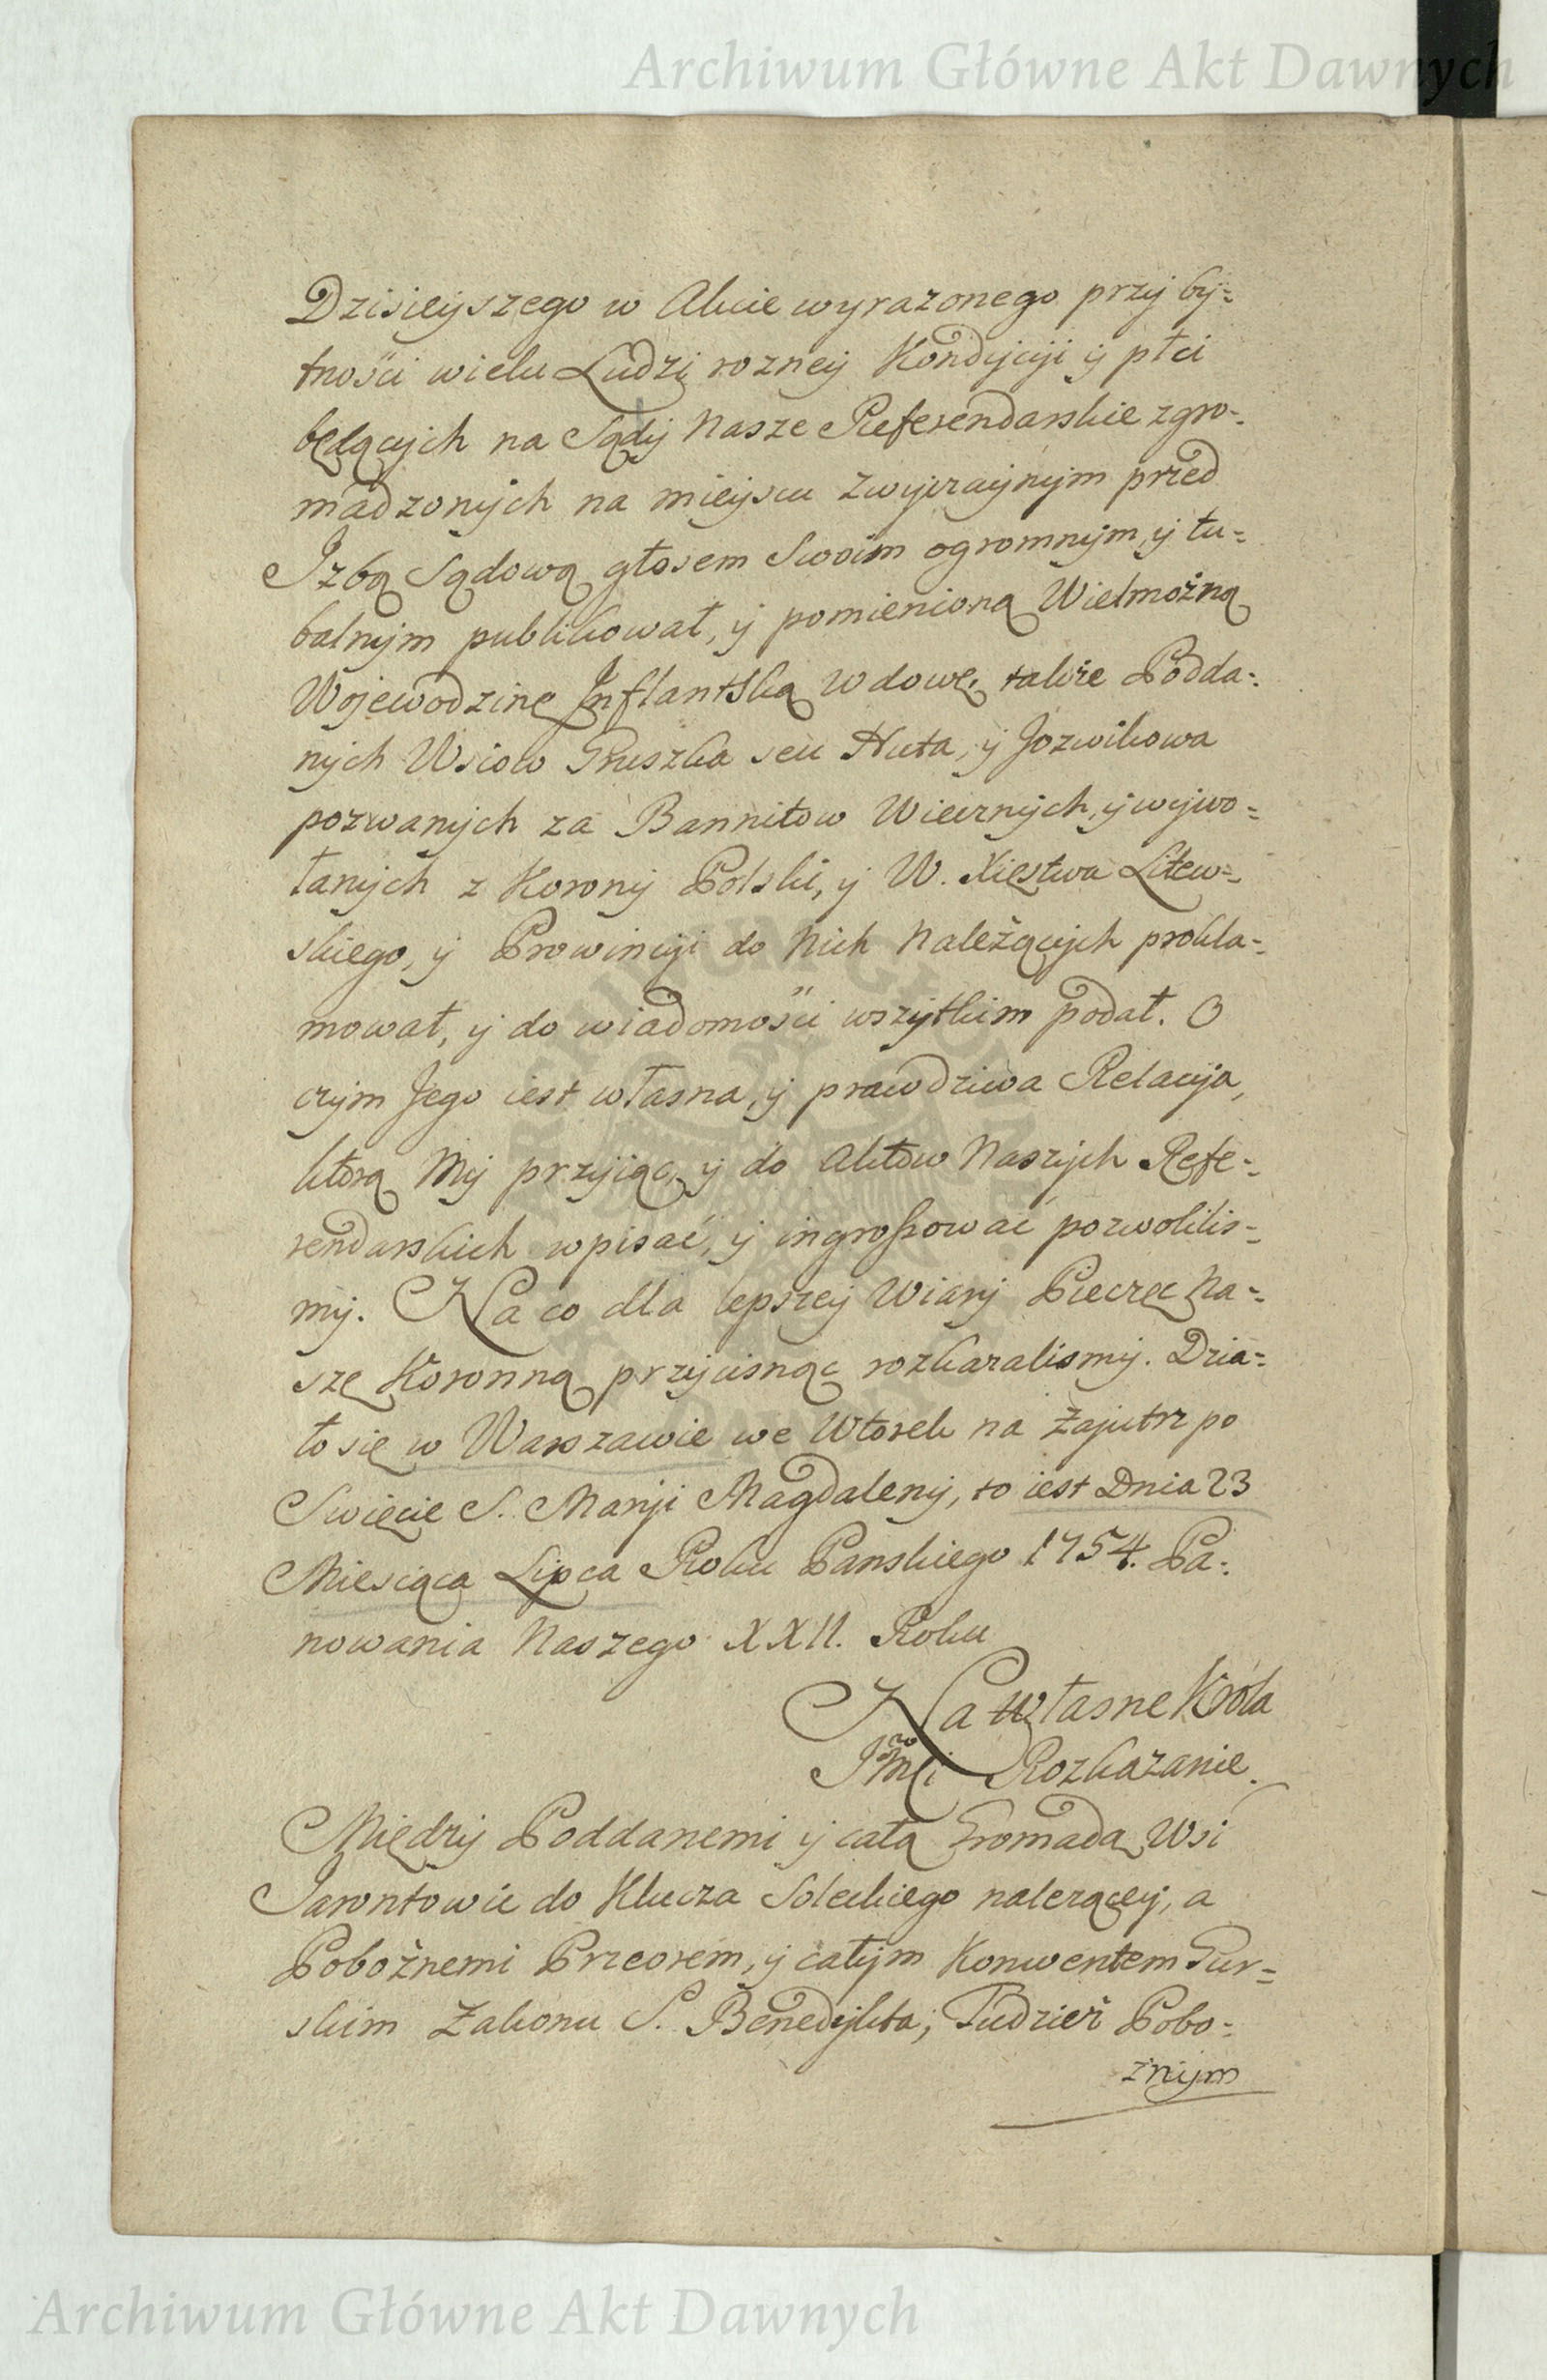 Archiwum Główne Akt Dawnych
Dzisieyszego w Akcie wyrazonego przy by=
tnosci wielu Ludzi rozney Kondycyi y płci
będących na Sądy Nasze Referendarskie zgro=
madzonych na mieyscu zwyczaynym przed
Izbą Sądową głosem Swoim ogromnym, y tu=
balnym publikował, y pomienioną Wielmożną
Wojewodzinę Inflantską Wdowę, także Podda=
nych Wsiow Ruszka seu Huta, y Jozwikowa
pozwanych za Bannitow Wiecznych, y wywo=
łanych z Korony Polski, y W. Xięstwa Litew=
skiego, y Prowincyi do Nich Należących prokla=
mował, y do wiadomości wszytkim podał. O
czym Jego iest własna, y prawdziwa Relacya,
ktorą My przyiąc, y do Aktow Naszych Refe=
rendarskich wpisać, y ingrossować pozwolilis=
my. Na co dla lepszey Wiary Pieczęc Na=
szę Koronną przycisnąc rozkazalismy. Dzia=
ło się w Warszawie we Wtorek na Zajutrz po
Swięcie S. Maryi Magdaleny, to iest Dnia 23
Miesiąca Lipca Roku Panskiego 1754. Pa=
nowania Naszego XXII. Roku
Na własne Króla
Jmci Rozkazanie.
Między Poddanemi y całą Gromadą Wsi
Jarontowic do Klucza Soleckiego nalezącey, a
Pobożnemi Przeorem, y całym Konwentem Pur=
skim Zakonu S. Benedykta; Tudzież Pobo=
znym
Archiwum Główne Akt Dawnych